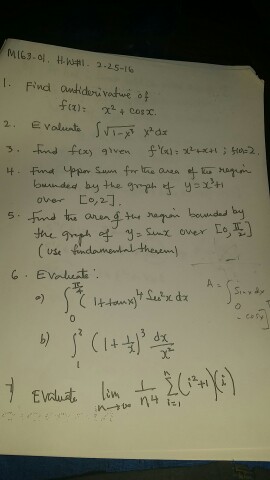 M163-01. H.W#1. 2-25-16
1. Find antiderivative of
f(x) = x² + cosx.
2. Evaluate ∫√(1-x³) x² dx
3. Find f(x) given f'(x) = x²+x+1 ; f(0)=2.
4. Find Upper Sum for the area of the region
bounded by the graph of y = x³+1
over [0,2].
5. find the area of the region bounded by
the graph of y = Sinx over [0, π/2]
(use fundamental theorem)
6. Evaluate:
a) ∫₀^(π/4) (1+tanx)⁴ Sec²x dx
A = ∫₀ Sinx dx
-cosx]
b) ∫₁² (1+1/x)³ dx/x²
7) Evaluate lim n→∞ 1/n⁴ Σ i=1 n (i²+1)(i)